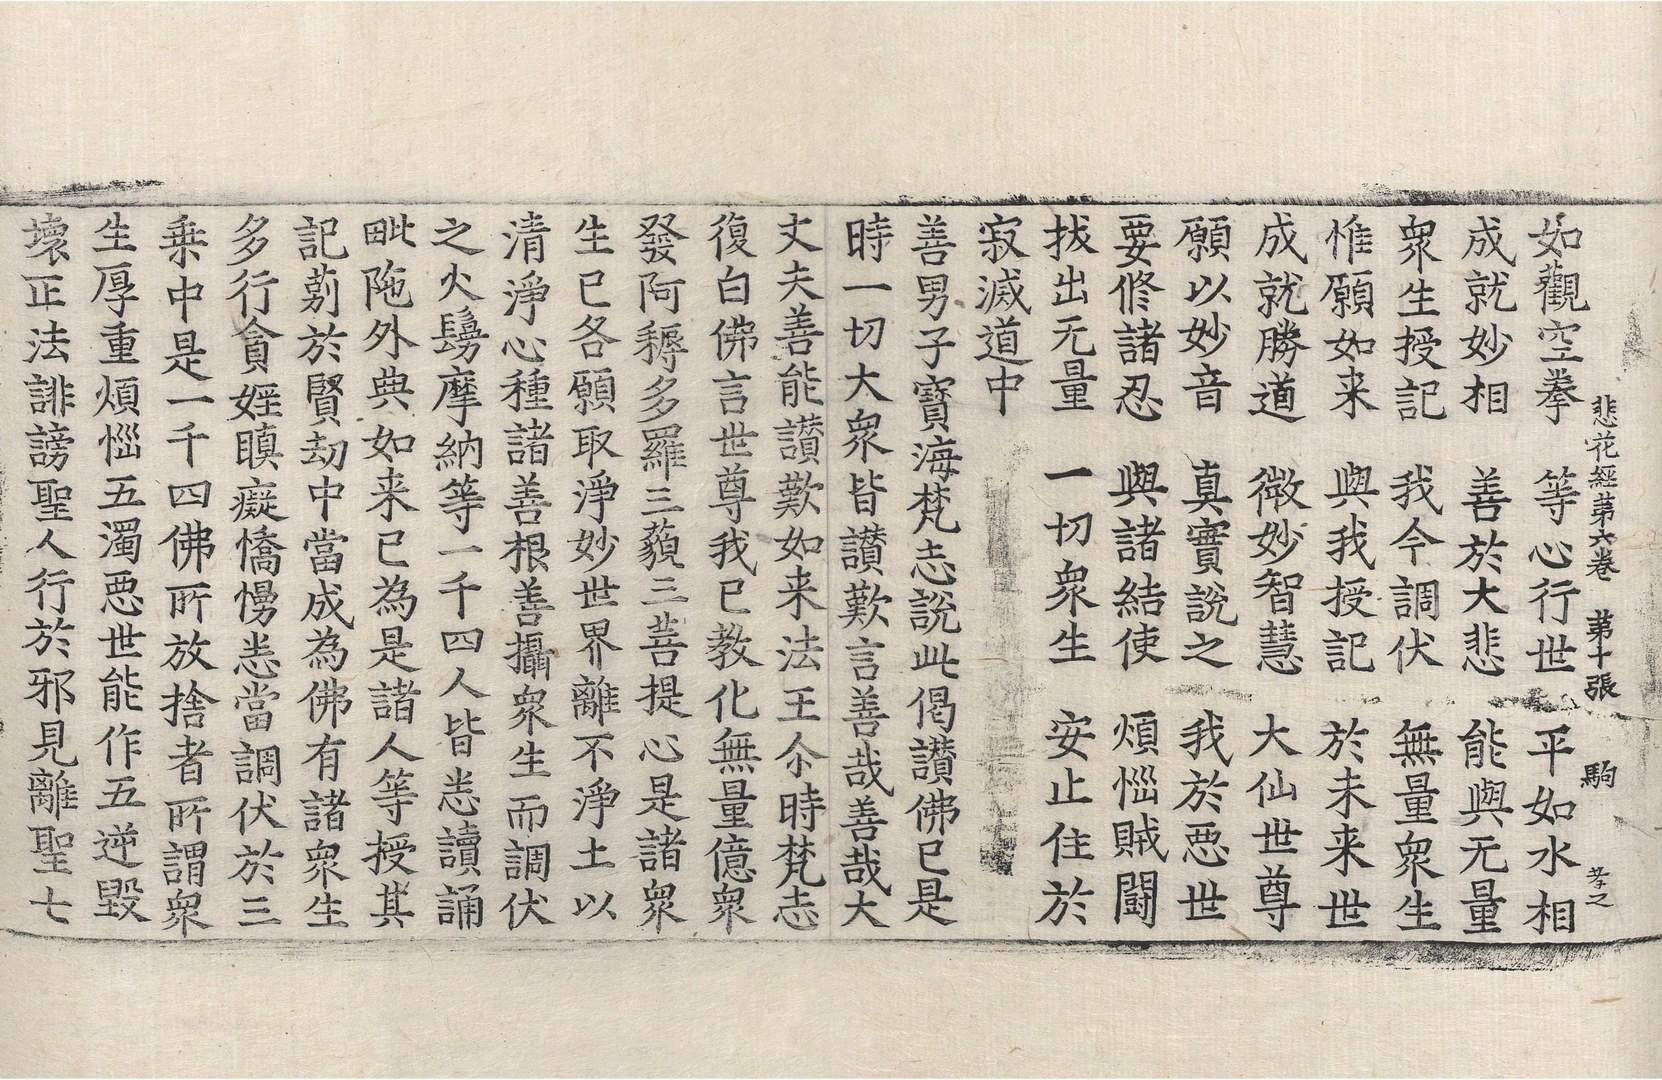 悲花經苐六卷　苐十張　駒　孝之
如觀空拳　等心行世　平如水相
成就妙相　善於大悲　能與无量
衆生授記　我今調伏　無量衆生
惟願如来　與我授記　於未来世
成就勝道　微妙智慧　大仙世尊
願以妙音　真實說之　我於惡世
要修諸忍　與諸結使　煩惱賊鬪
拔出无量　一切衆生　安止住於
寂滅道中
善男子寶海梵志說此偈讃佛已是
時一切大衆皆讃歎言善哉善哉大
丈夫善能讃歎如来法王尒時梵志
復白佛言世尊我已教化無量億衆
發阿耨多羅三藐三菩提心是諸衆
生已各願取淨妙世界離不淨土以
清淨心種諸善根善攝衆生而調伏
之火鬘摩納等一千四人皆悉讀誦
毗陁外典如来已為是諸人等授其
記莂於賢劫中當成為佛有諸衆生
多行貪婬瞋癡憍慢悉當調伏於三
乗中是一千四佛所放捨者所謂衆
生厚重煩惱五濁惡世能作五逆毀
壞正法誹謗聖人行於邪見離聖七